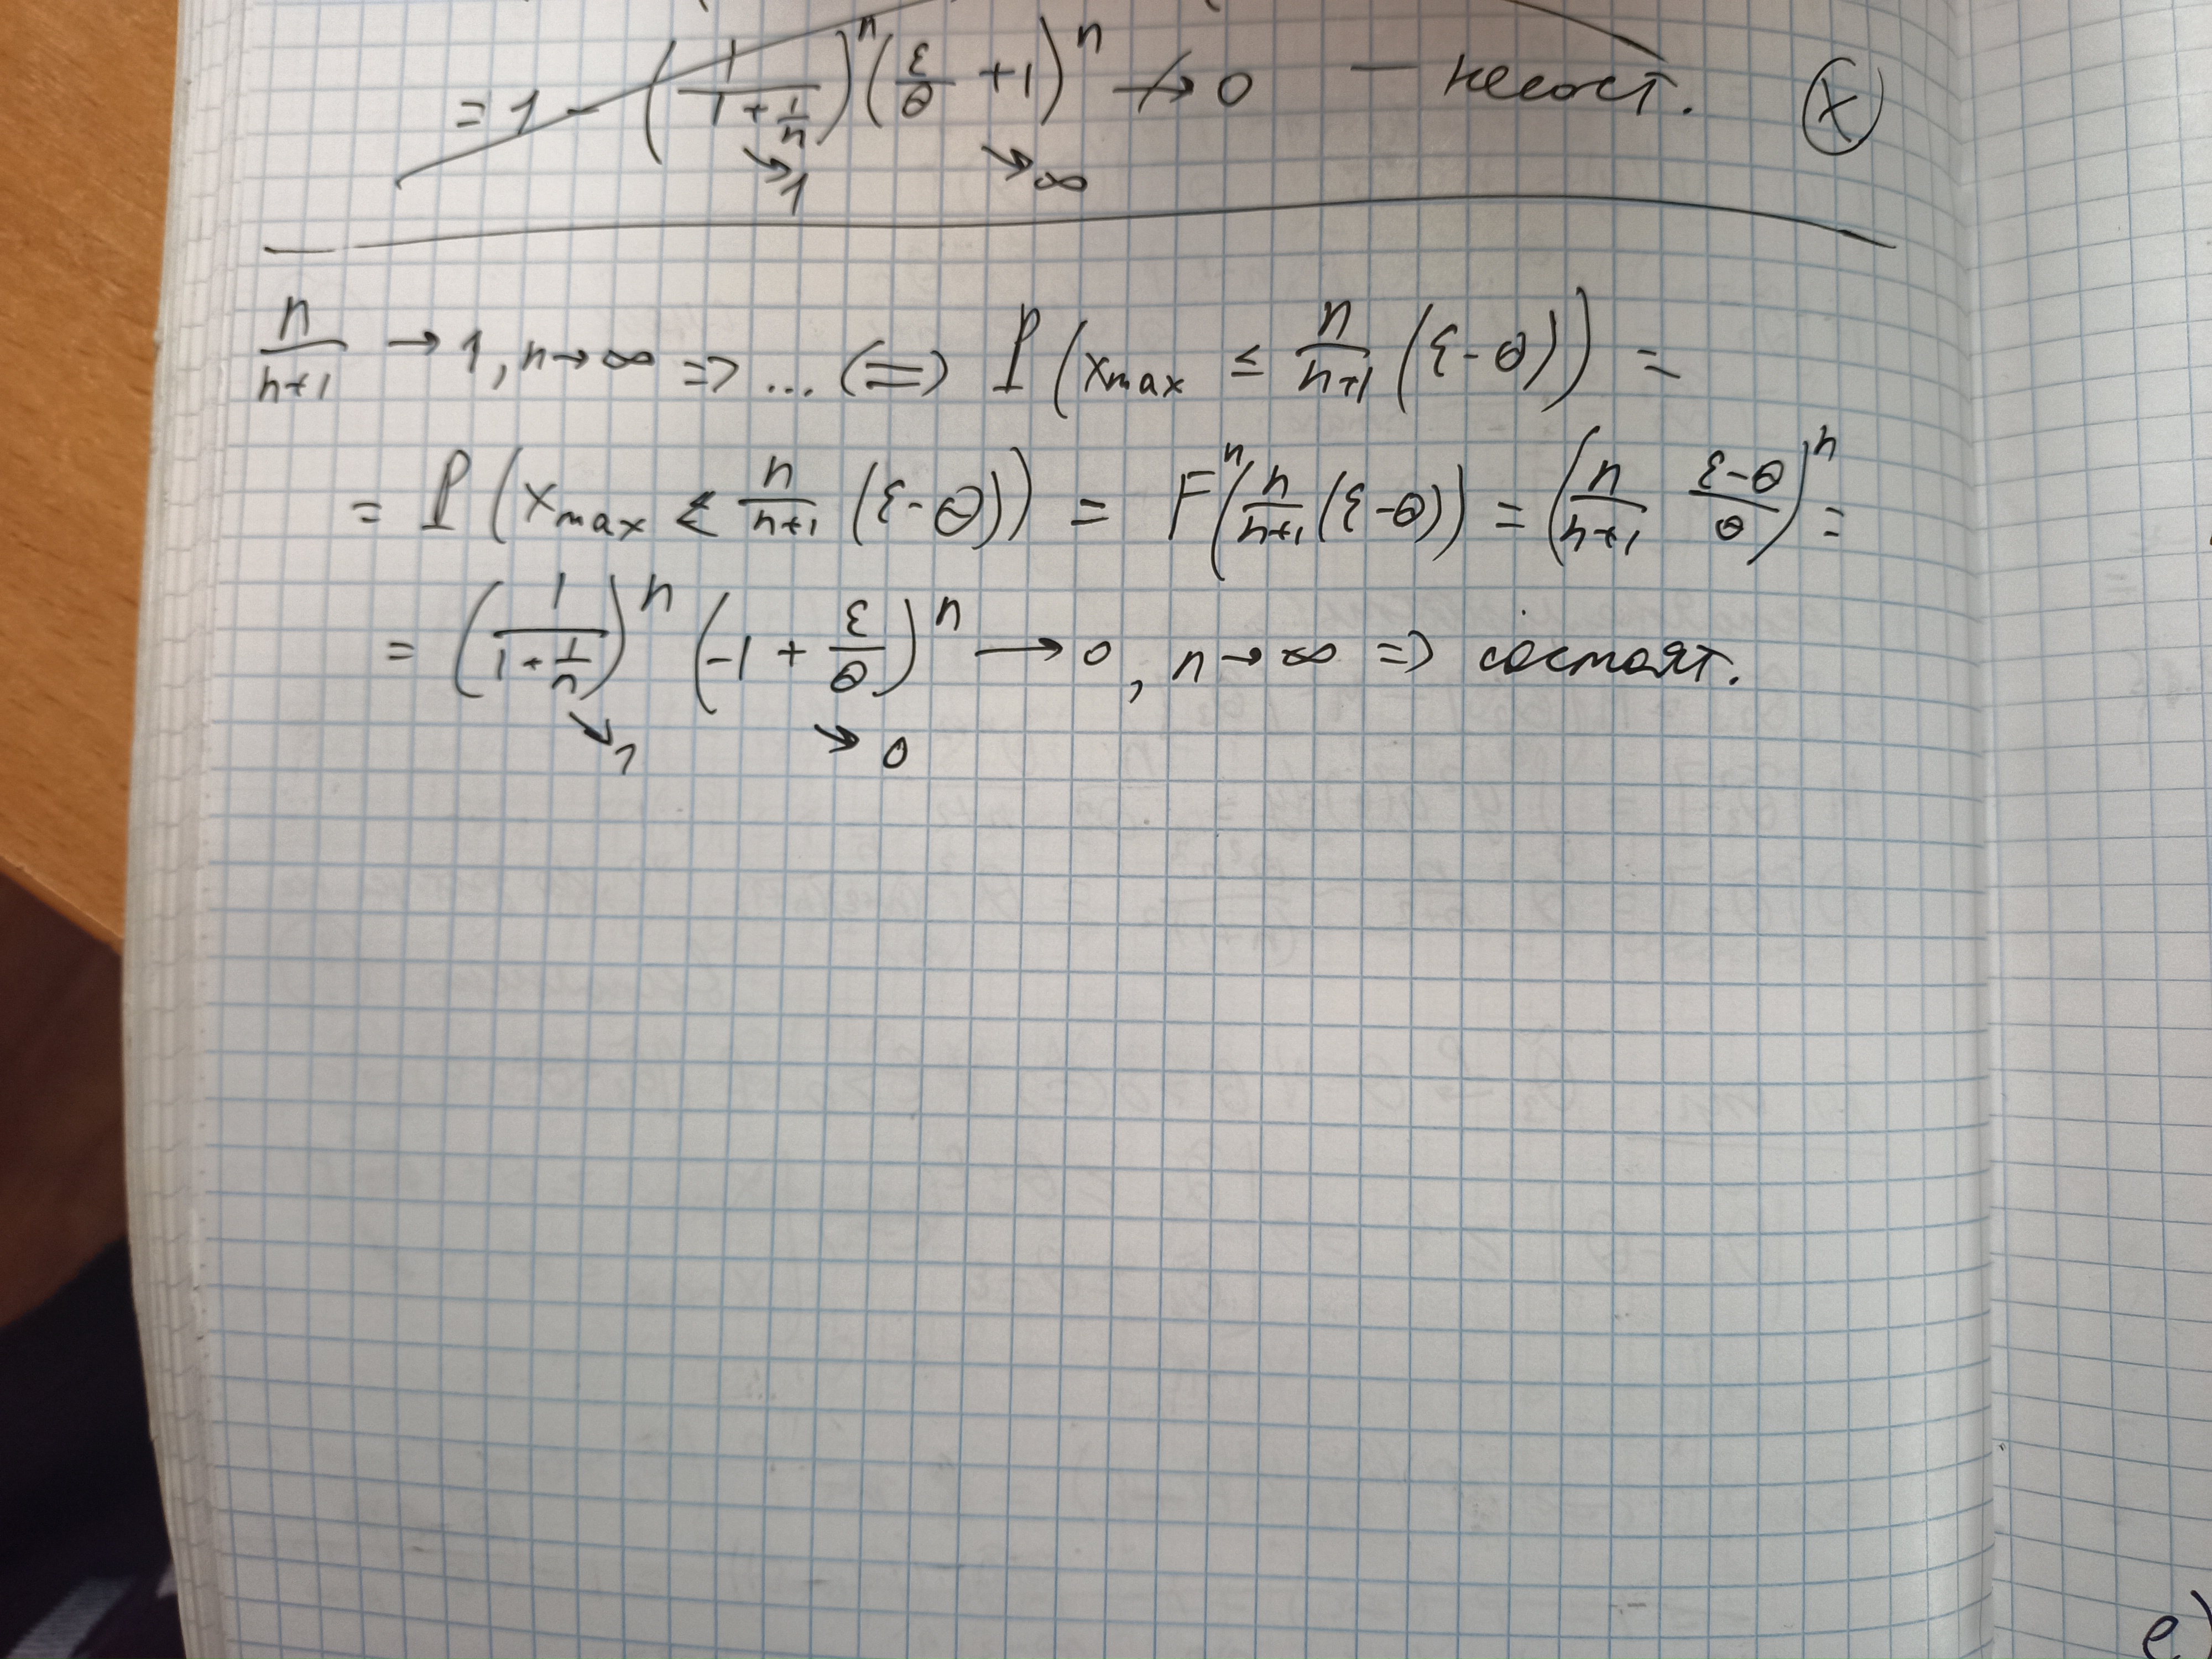 = 1 - (1/(1 + 1/n))^n (ε/θ + 1)^n ↛ 0 — несост. (X)
↘ 1 ↘ ∞
n/(n+1) → 1, n → ∞ => ... (=) P(x_max ≤ n/(n+1) (ε-θ)) =
= P(x_max ≤ n/(n+1) (ε-θ)) = F^n(n/(n+1) (ε-θ)) = (n/(n+1) (ε-θ)/θ)^n =
= (1/(1 + 1/n))^n (-1 + ε/θ)^n → 0, n → ∞ => состоят.
↘ 1 ↘ 0
e)